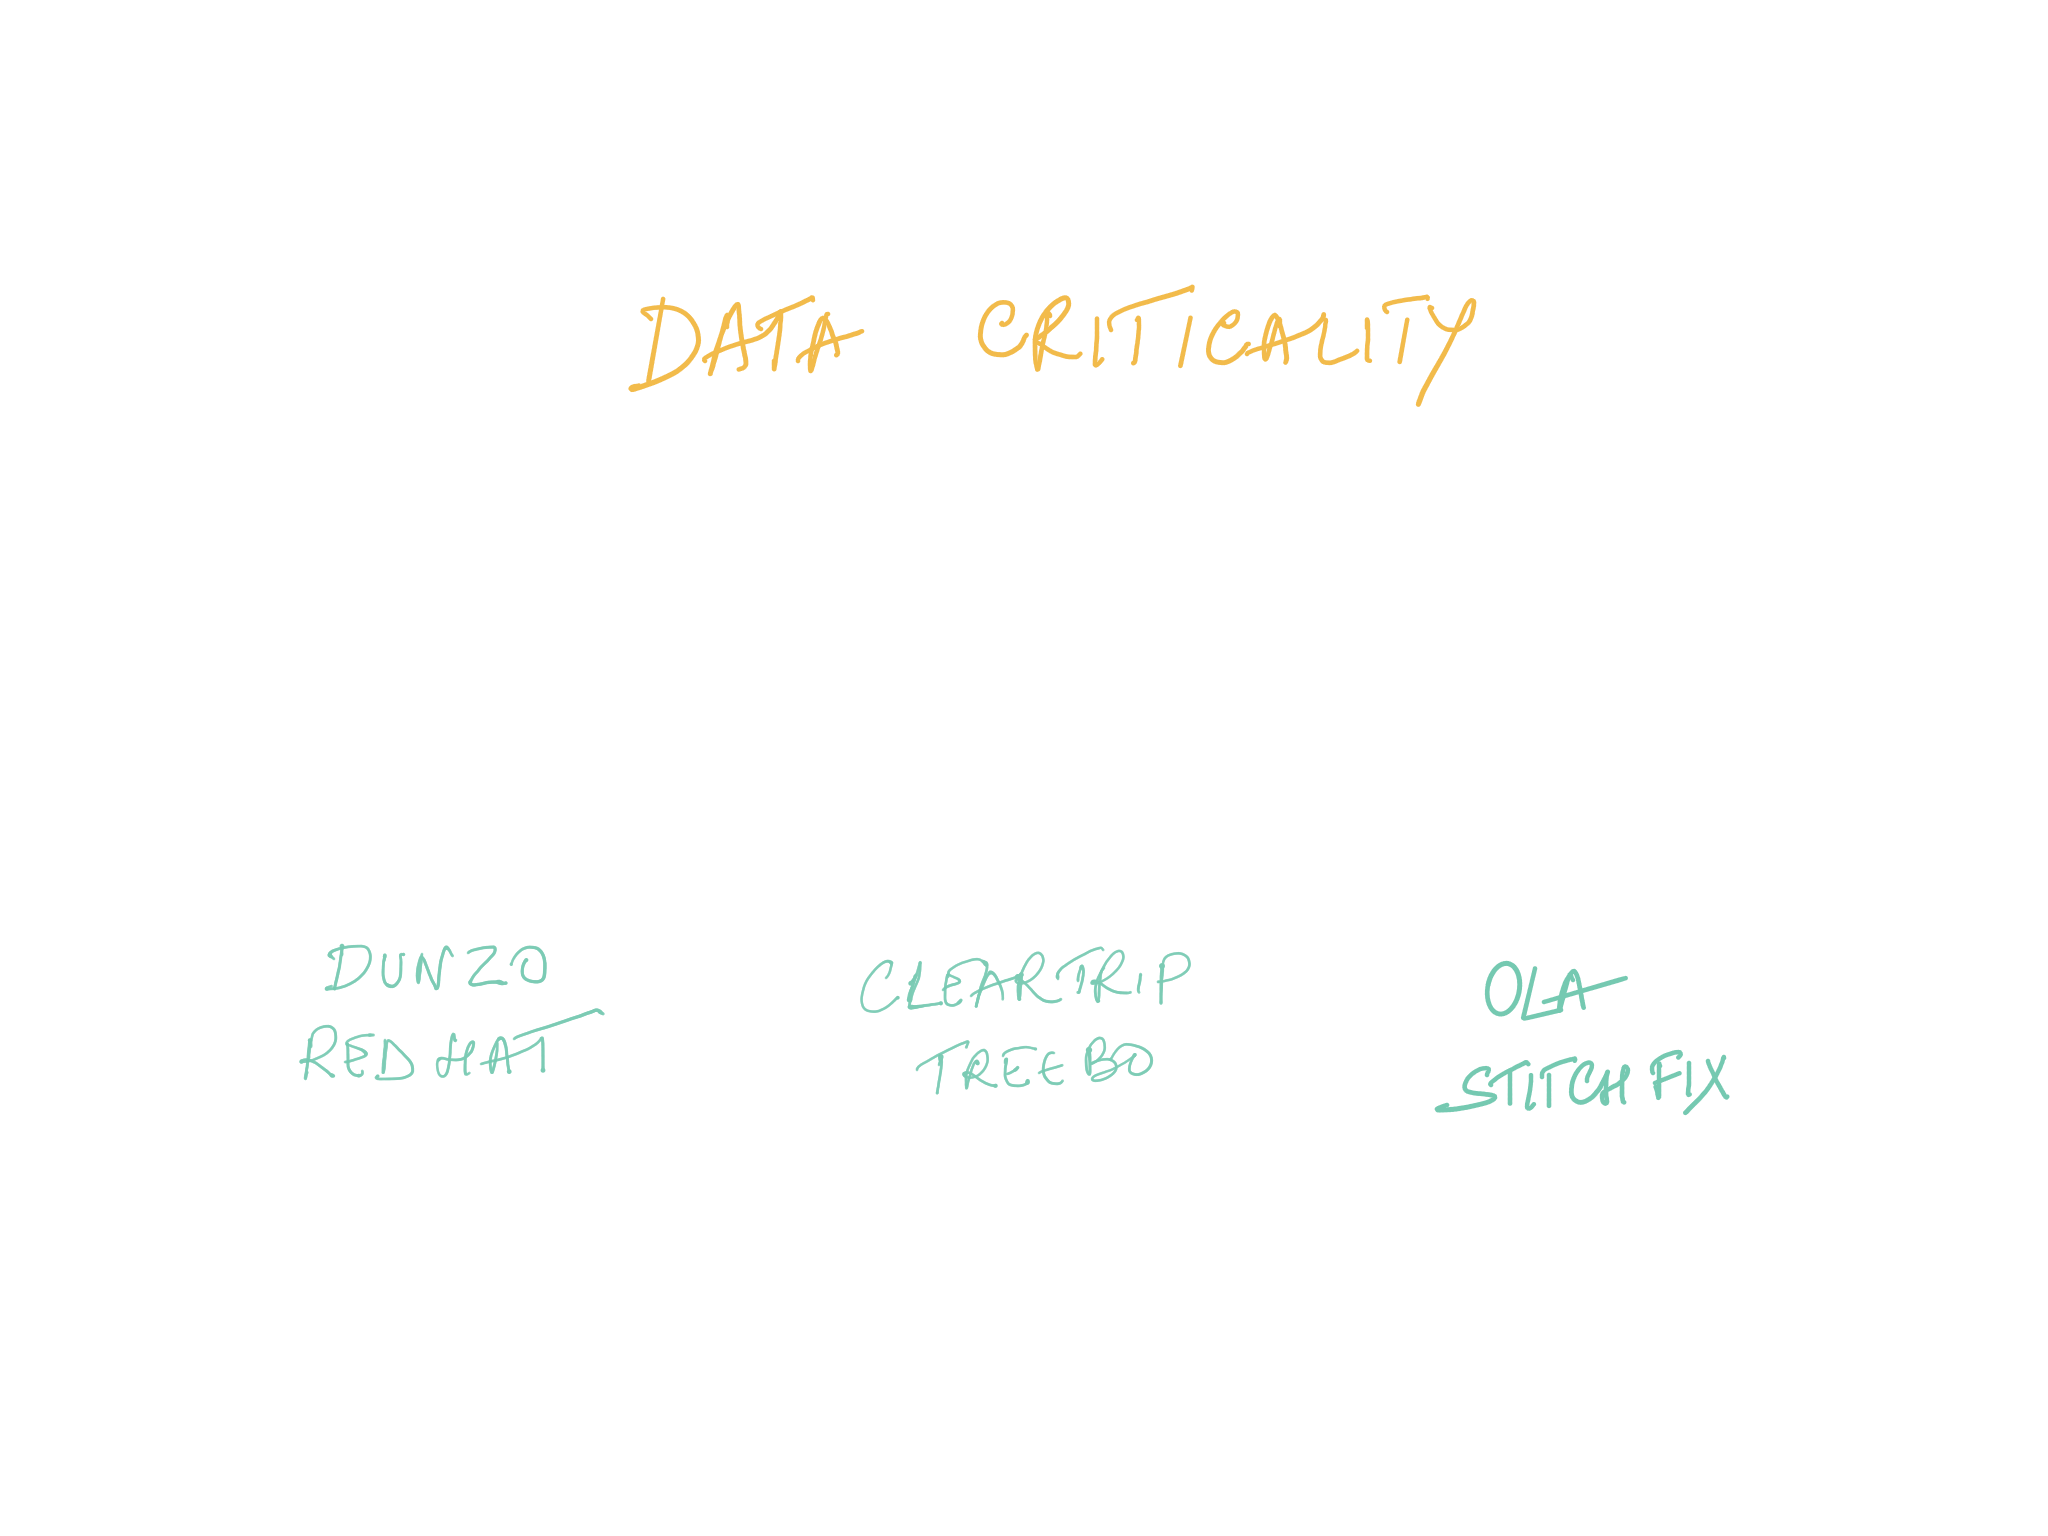 DATA CRITICALITY
DUNZO
RED HAT
CLEARTRIP
TREEBO
OLA
STITCH FIX